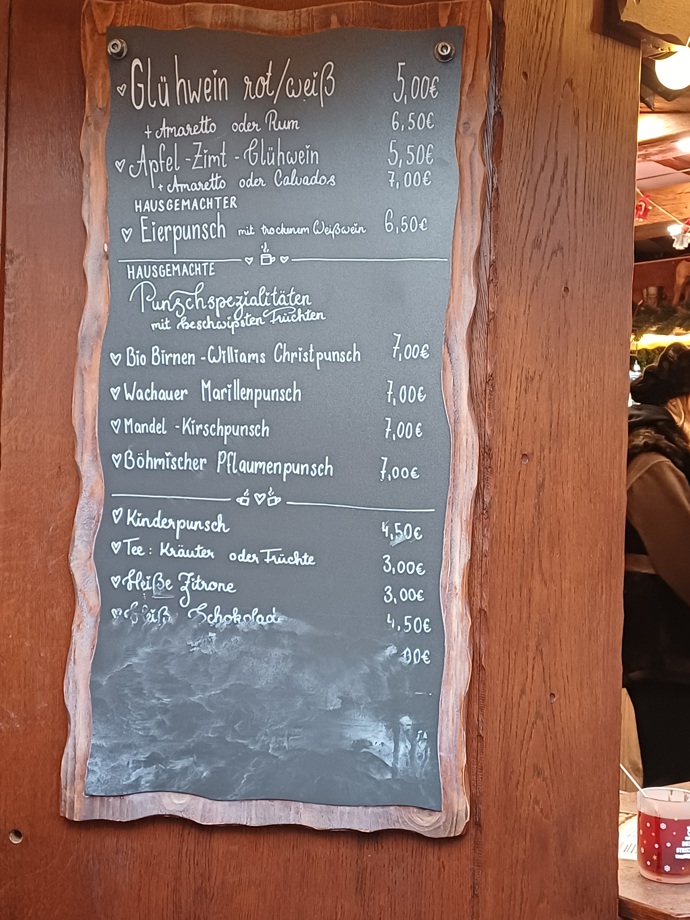 Glühwein rot/weiß 5,00€
+ Amaretto oder Rum 6,50€
Apfel-Zimt-Glühwein 5,50€
+ Amaretto oder Calvados 7,00€
HAUSGEMACHTER
Eierpunsch mit trockenem Weißwein 6,50€
HAUSGEMACHTE
Punschspezialitäten
mit beschwipsten Früchten
Bio Birnen-Williams Christpunsch 7,00€
Wachauer Marillenpunsch 7,00€
Mandel-Kirschpunsch 7,00€
Böhmischer Pflaumenpunsch 7,00€
Kinderpunsch 4,50€
Tee: Kräuter oder Früchte 3,00€
Heiße Zitrone 3,00€
Heiß Schokolad 4,50€
00€